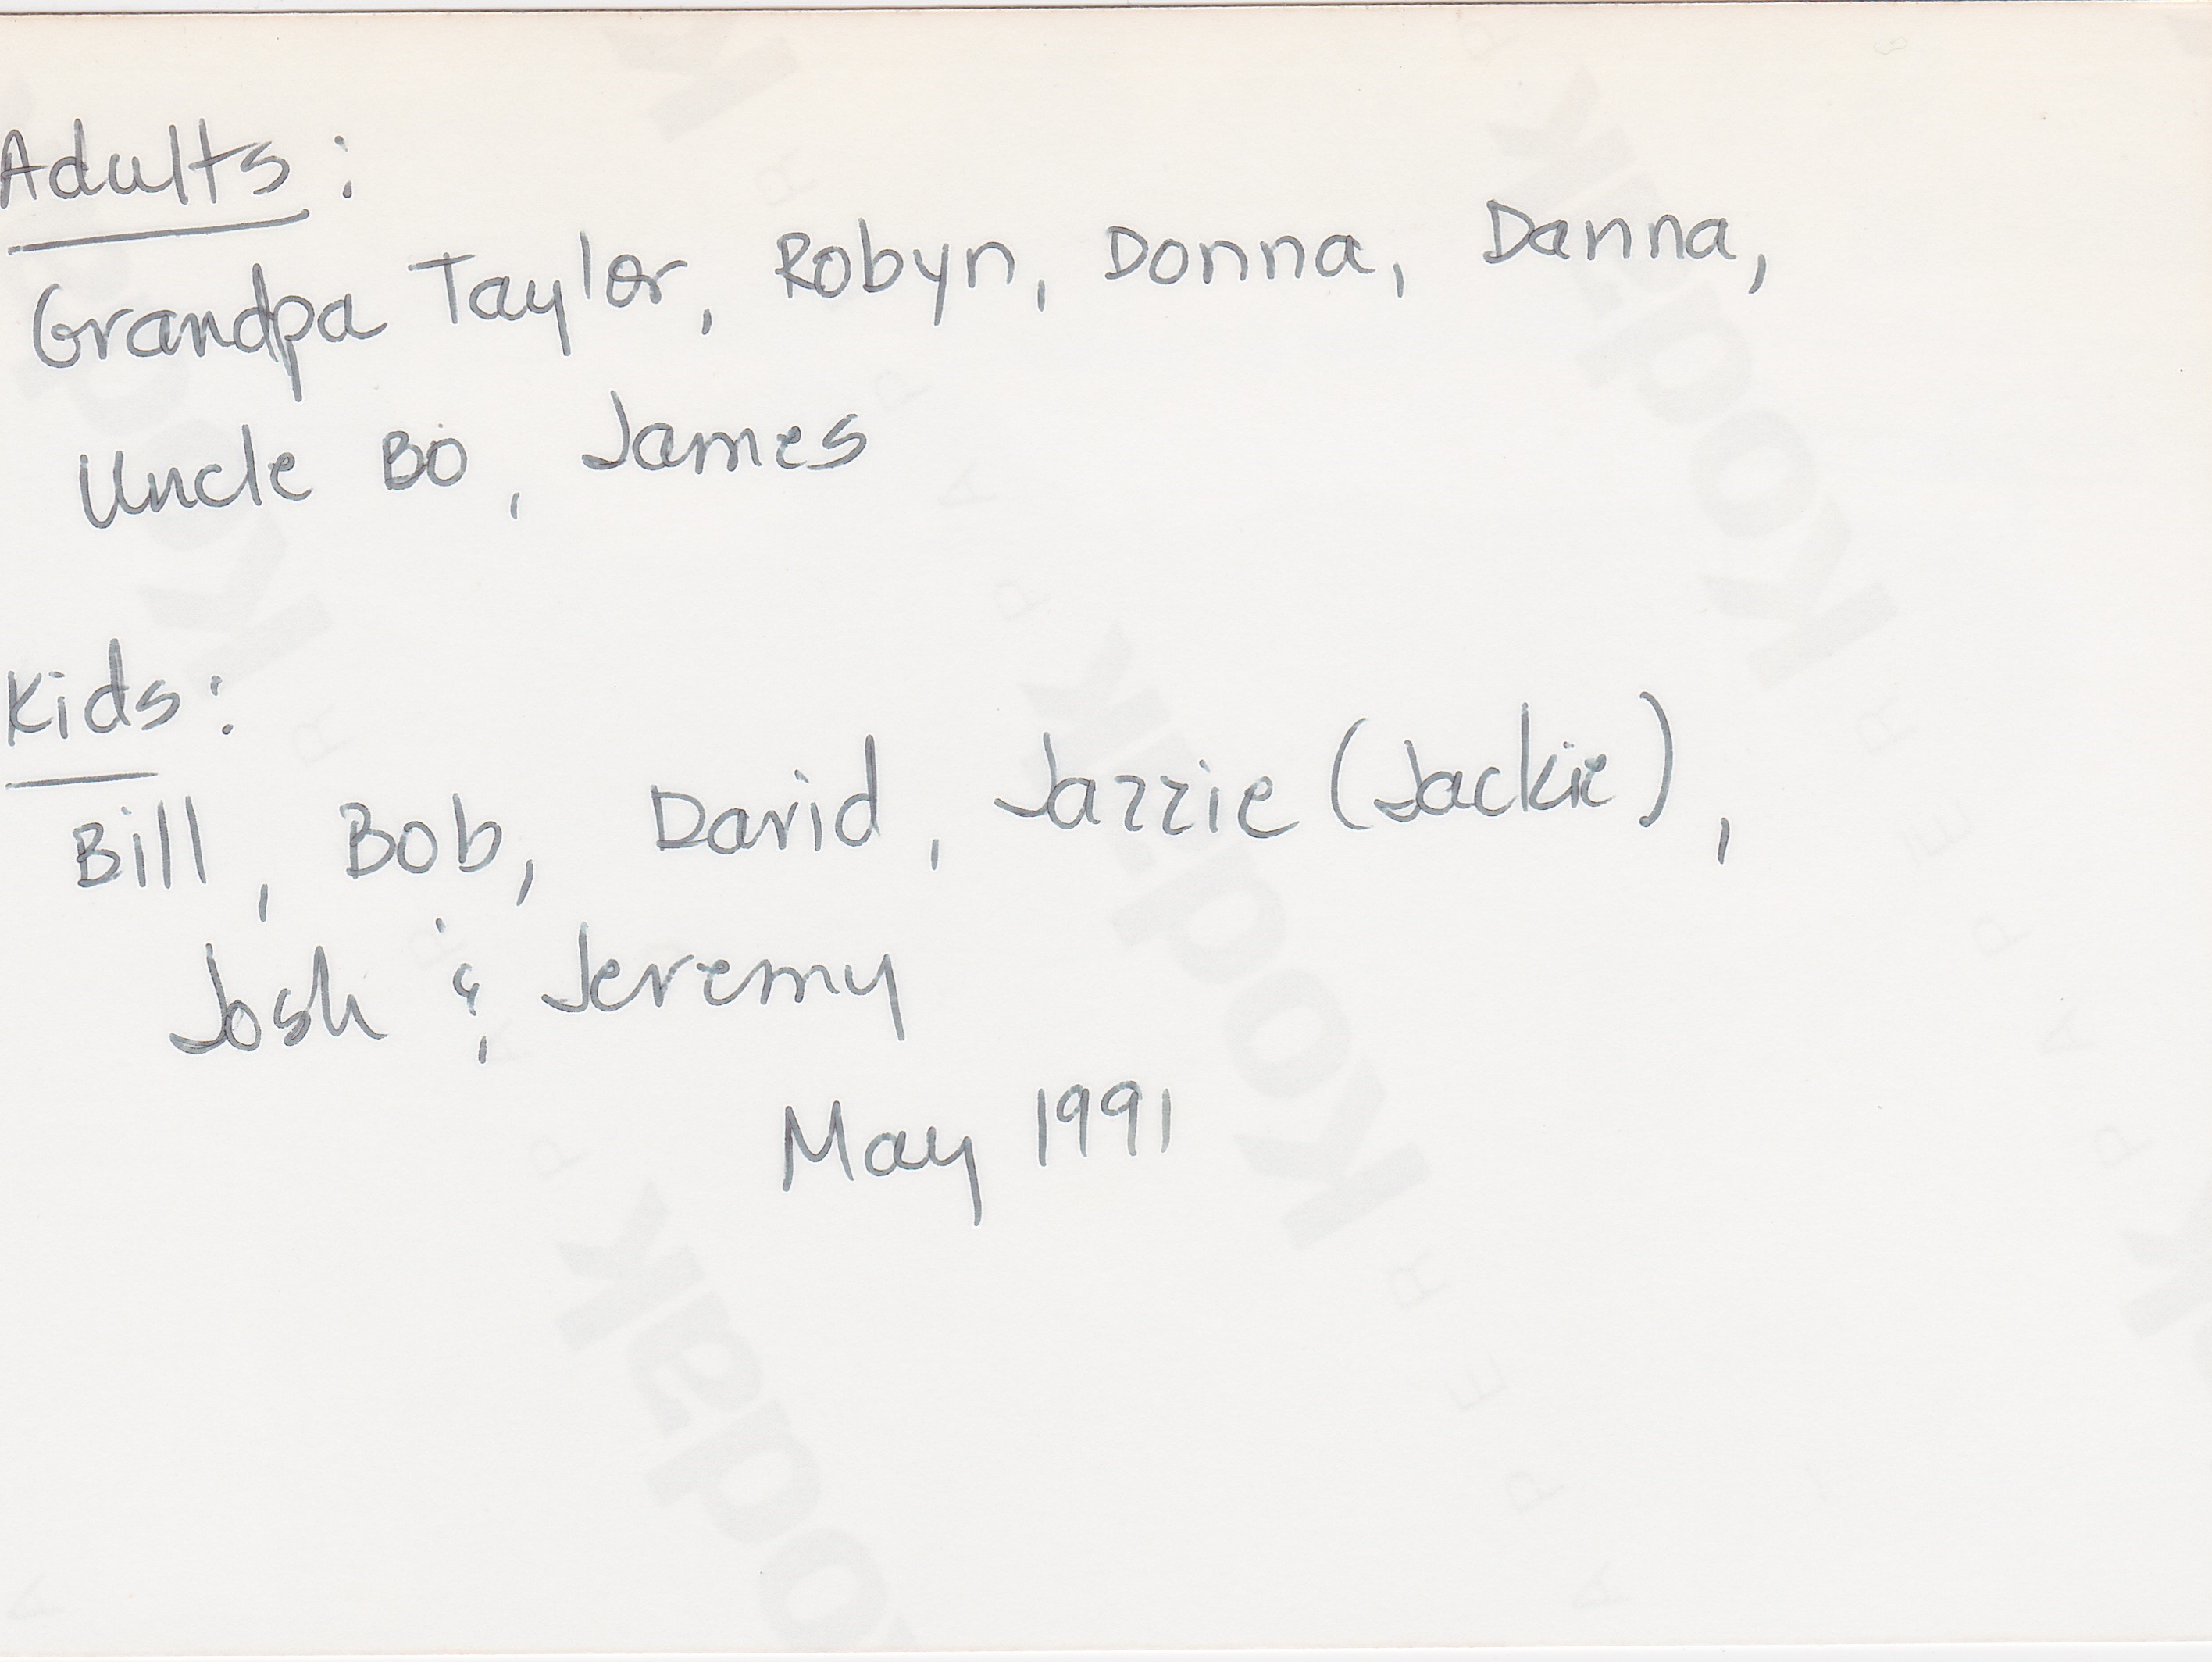 Adults:
Grandpa Taylor, Robyn, Donna, Danna,
Uncle Bo, James
Kids:
Bill, Bob, David, Jazzie (Jackie),
Josh & Jeremy
May 1991
Kodak
PAPER